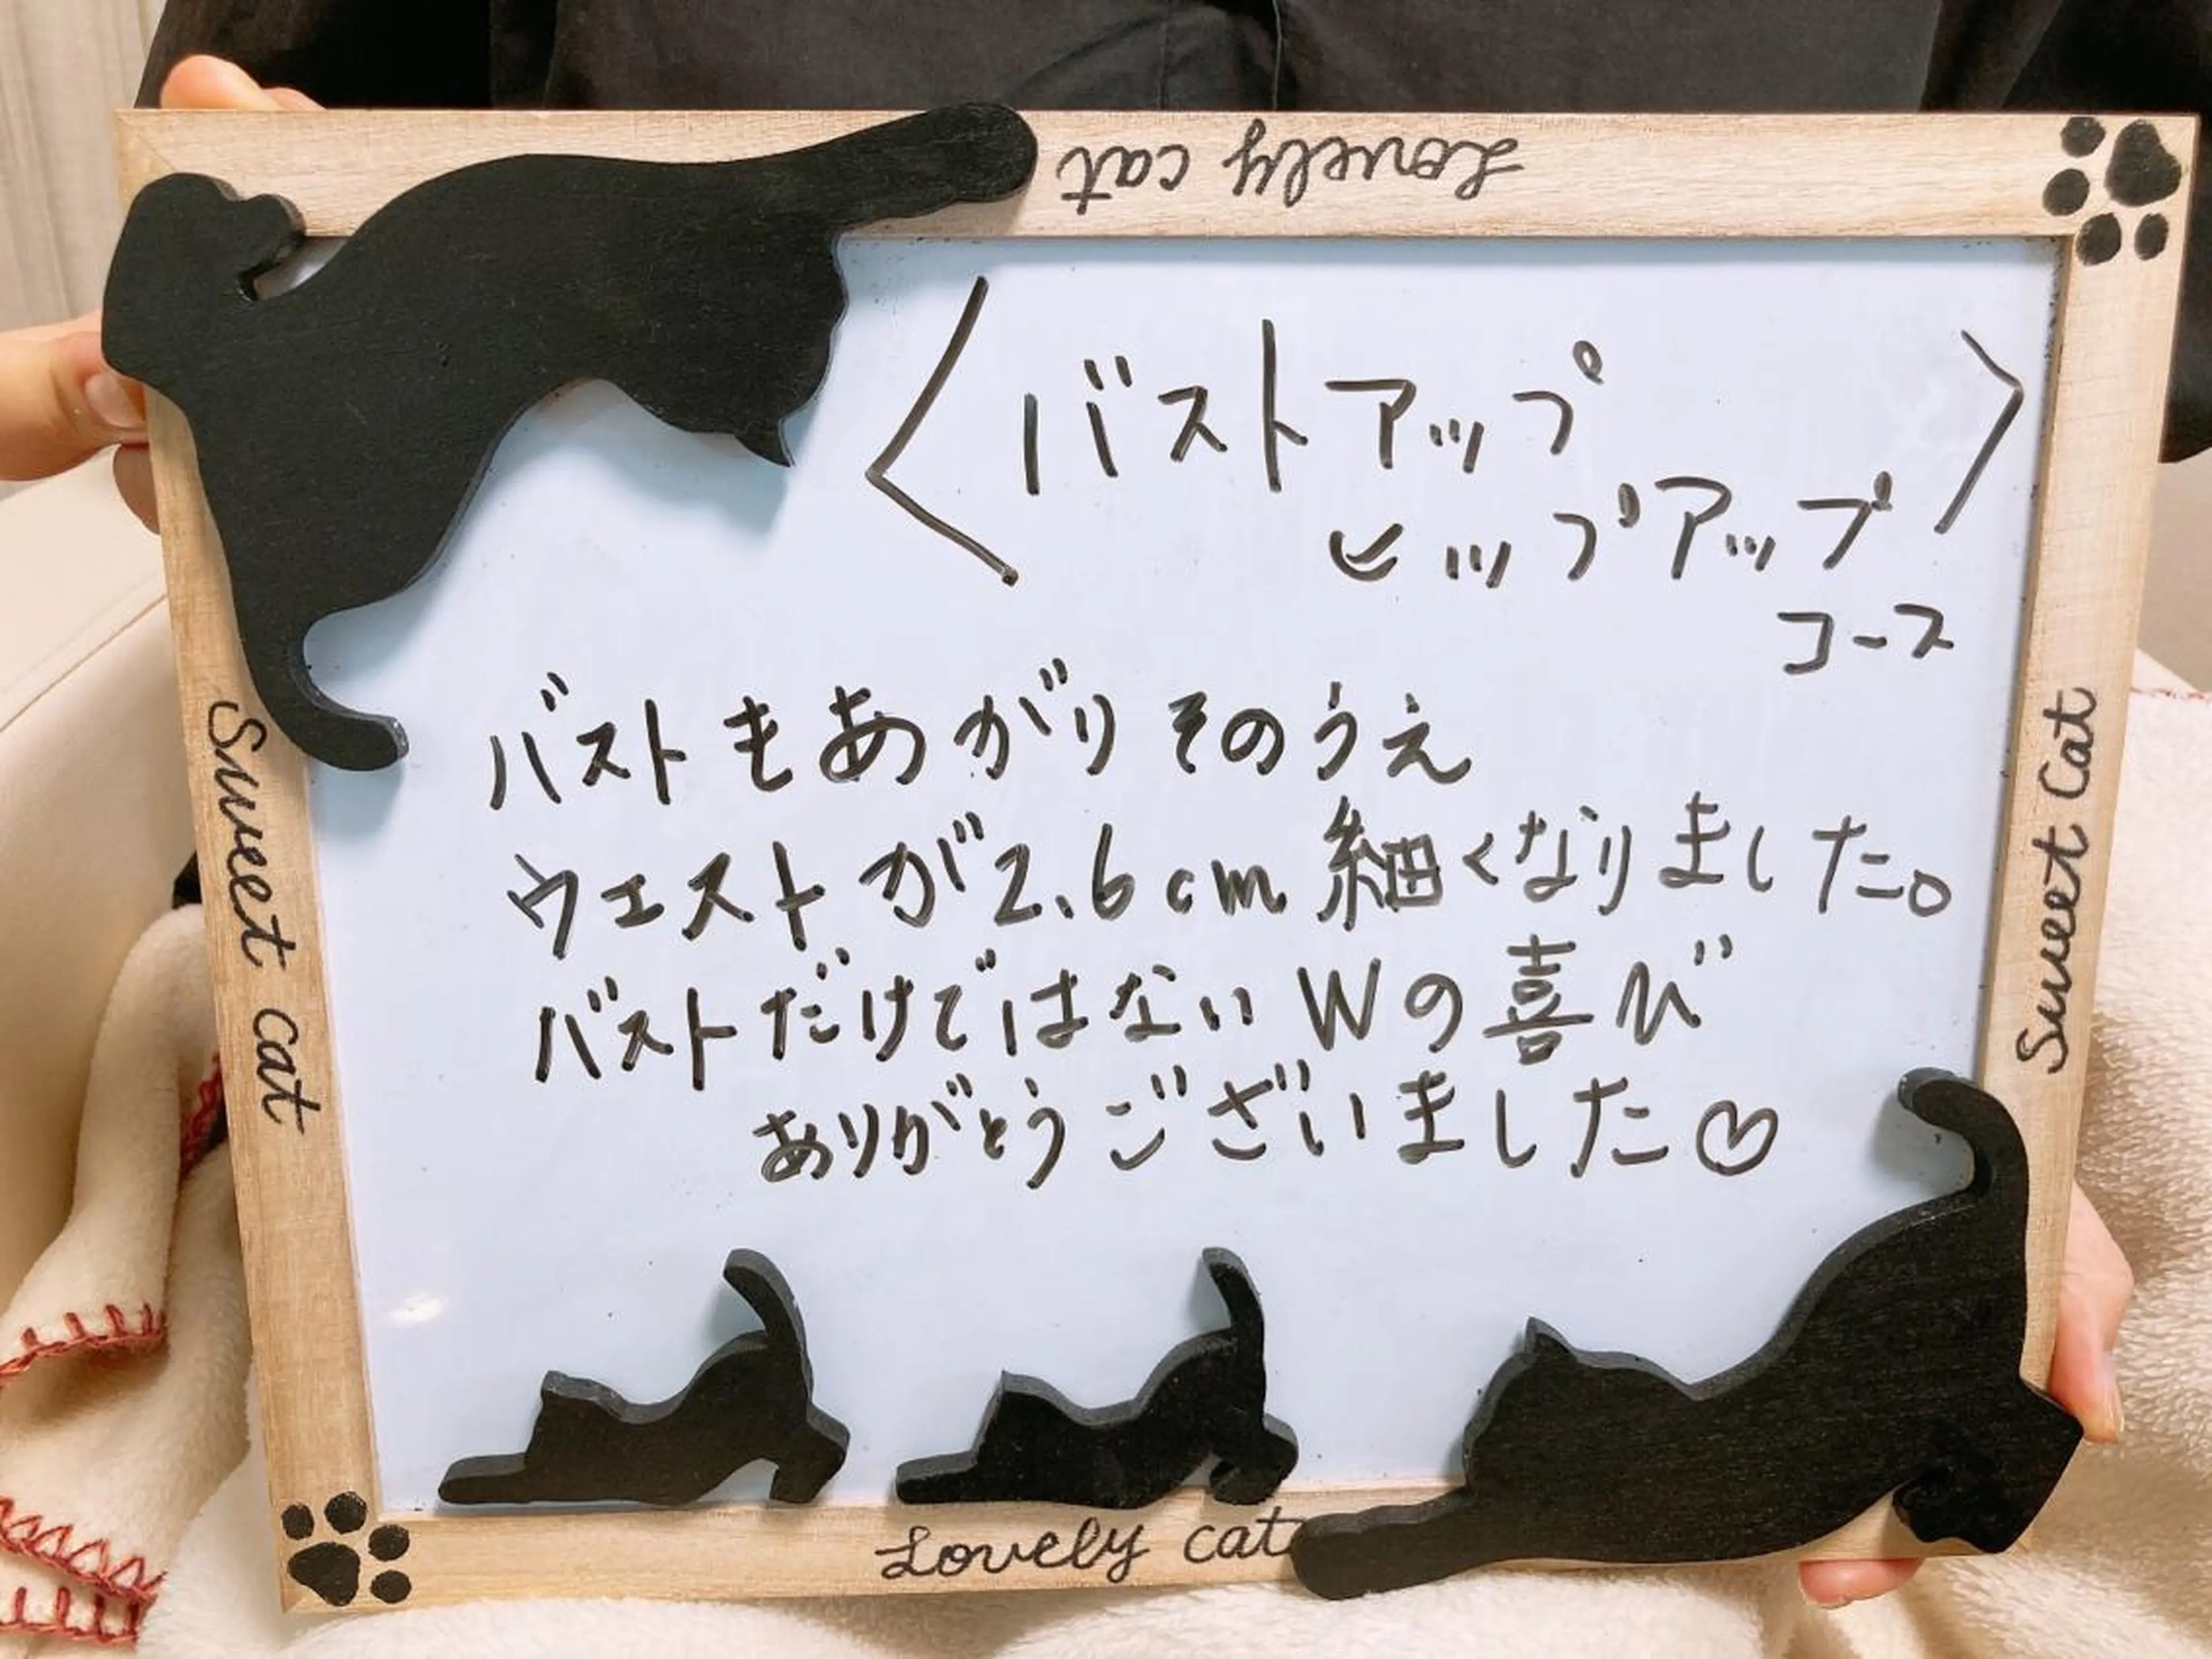 Lovely cat
〈バストアップ
ヒップアップ〉
コース
バストもあがりそのうえ
ウエストが2.6cm細くなりました。
バストだけではないWの喜び
ありがとうございました♡
Sweet cat
Sweet Cat
Lovely cat